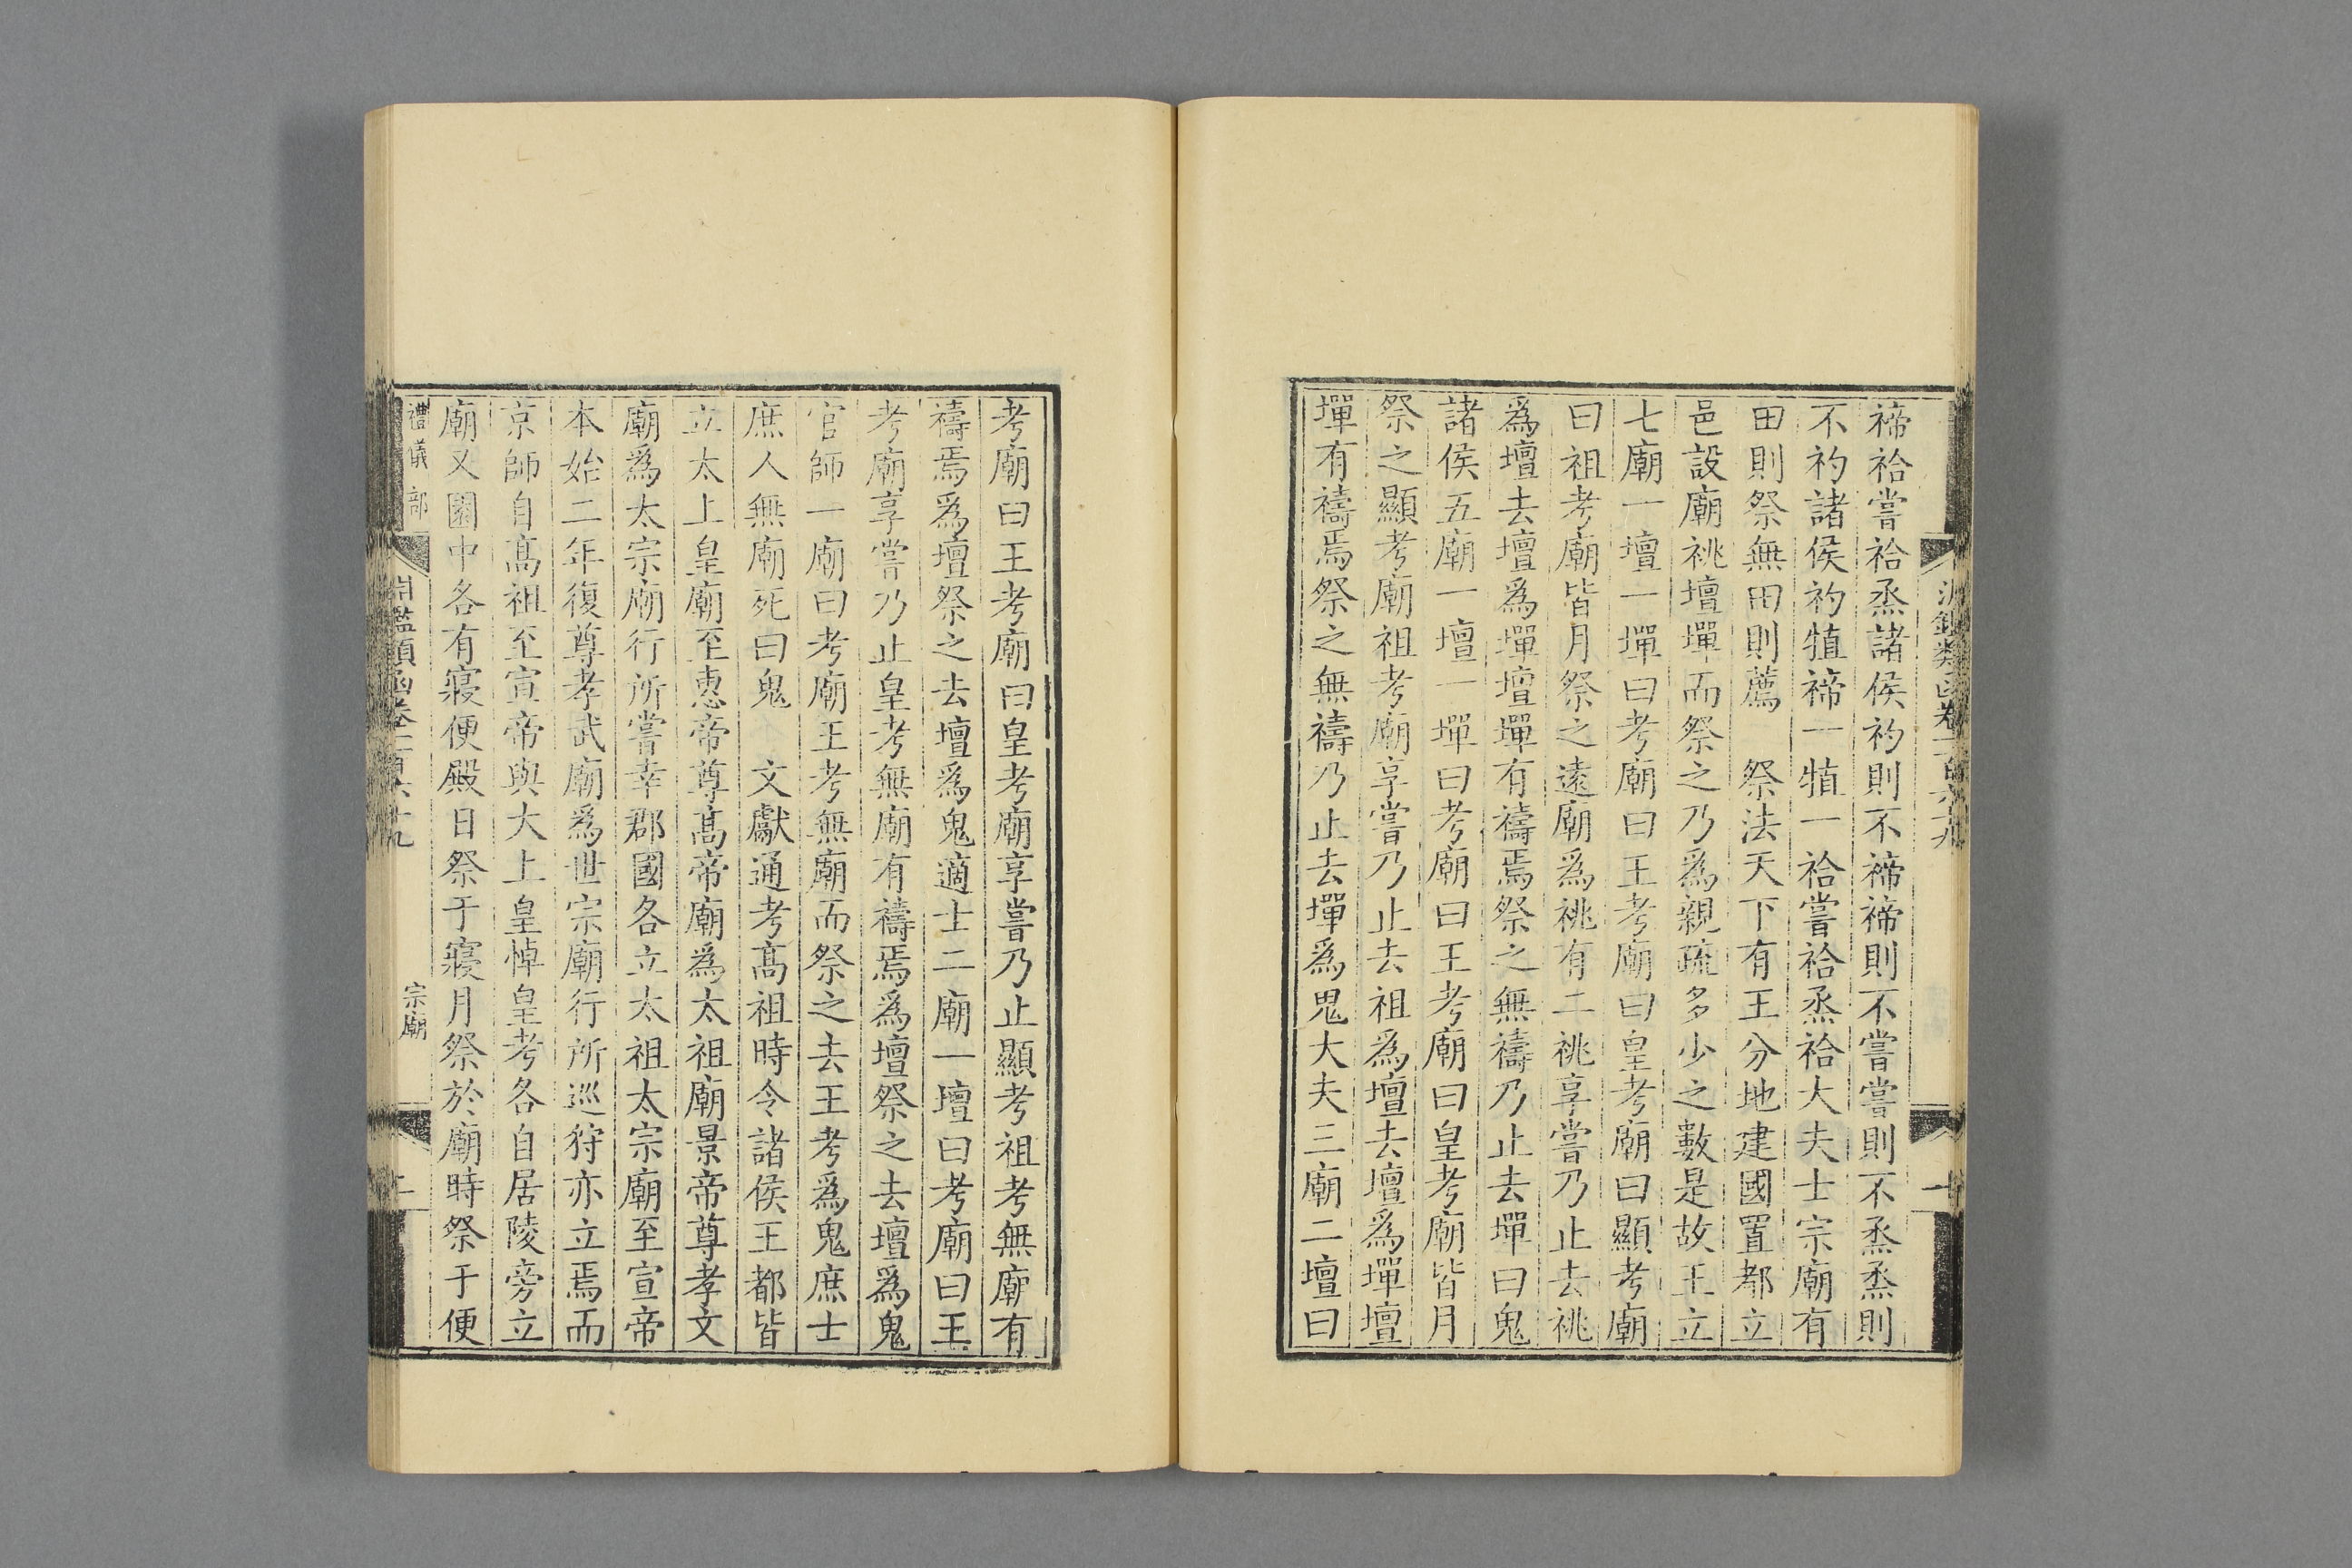 禘祫嘗祫烝諸侯礿則不禘禘則不嘗嘗則不烝烝則
不礿諸侯礿犆禘一犆一祫嘗祫烝祫大夫士宗廟有
田則祭無田則薦　祭法天下有王分地建國置都立
邑設廟祧壇墠而祭之乃爲親疏多少之數是故王立
七廟一壇一墠曰考廟曰王考廟曰皇考廟曰顯考廟
曰祖考廟皆月祭之遠廟爲祧有二祧享嘗乃止去祧
爲壇去壇爲墠壇墠有禱焉祭之無禱乃止去墠曰鬼
諸侯五廟一壇一墠曰考廟曰王考廟曰皇考廟皆月
祭之顯考廟祖考廟享嘗乃止去祖爲壇去壇爲墠壇
墠有禱焉祭之無禱乃止去墠爲鬼大夫三廟二壇曰
考廟曰王考廟曰皇考廟享嘗乃止顯考祖考無廟有
禱焉爲壇祭之去壇爲鬼適士二廟一壇曰考廟曰王
考廟享嘗乃止皇考無廟有禱焉爲壇祭之去壇爲鬼
官師一廟曰考廟王考無廟而祭之去王考爲鬼庶士
庶人無廟死曰鬼　文獻通考高祖時令諸侯王都皆
立太上皇廟至惠帝尊高帝廟爲太祖廟景帝尊孝文
廟爲太宗廟行所嘗幸郡國各立太祖太宗廟至宣帝
本始二年復尊孝武廟爲世宗廟行所巡狩亦立焉而
京師自高祖至宣帝與大上皇悼皇考各自居陵旁立
廟又園中各有寢便殿日祭于寢月祭於廟時祭于便
禮儀部
淵鑑類函卷一百六十九
宗廟